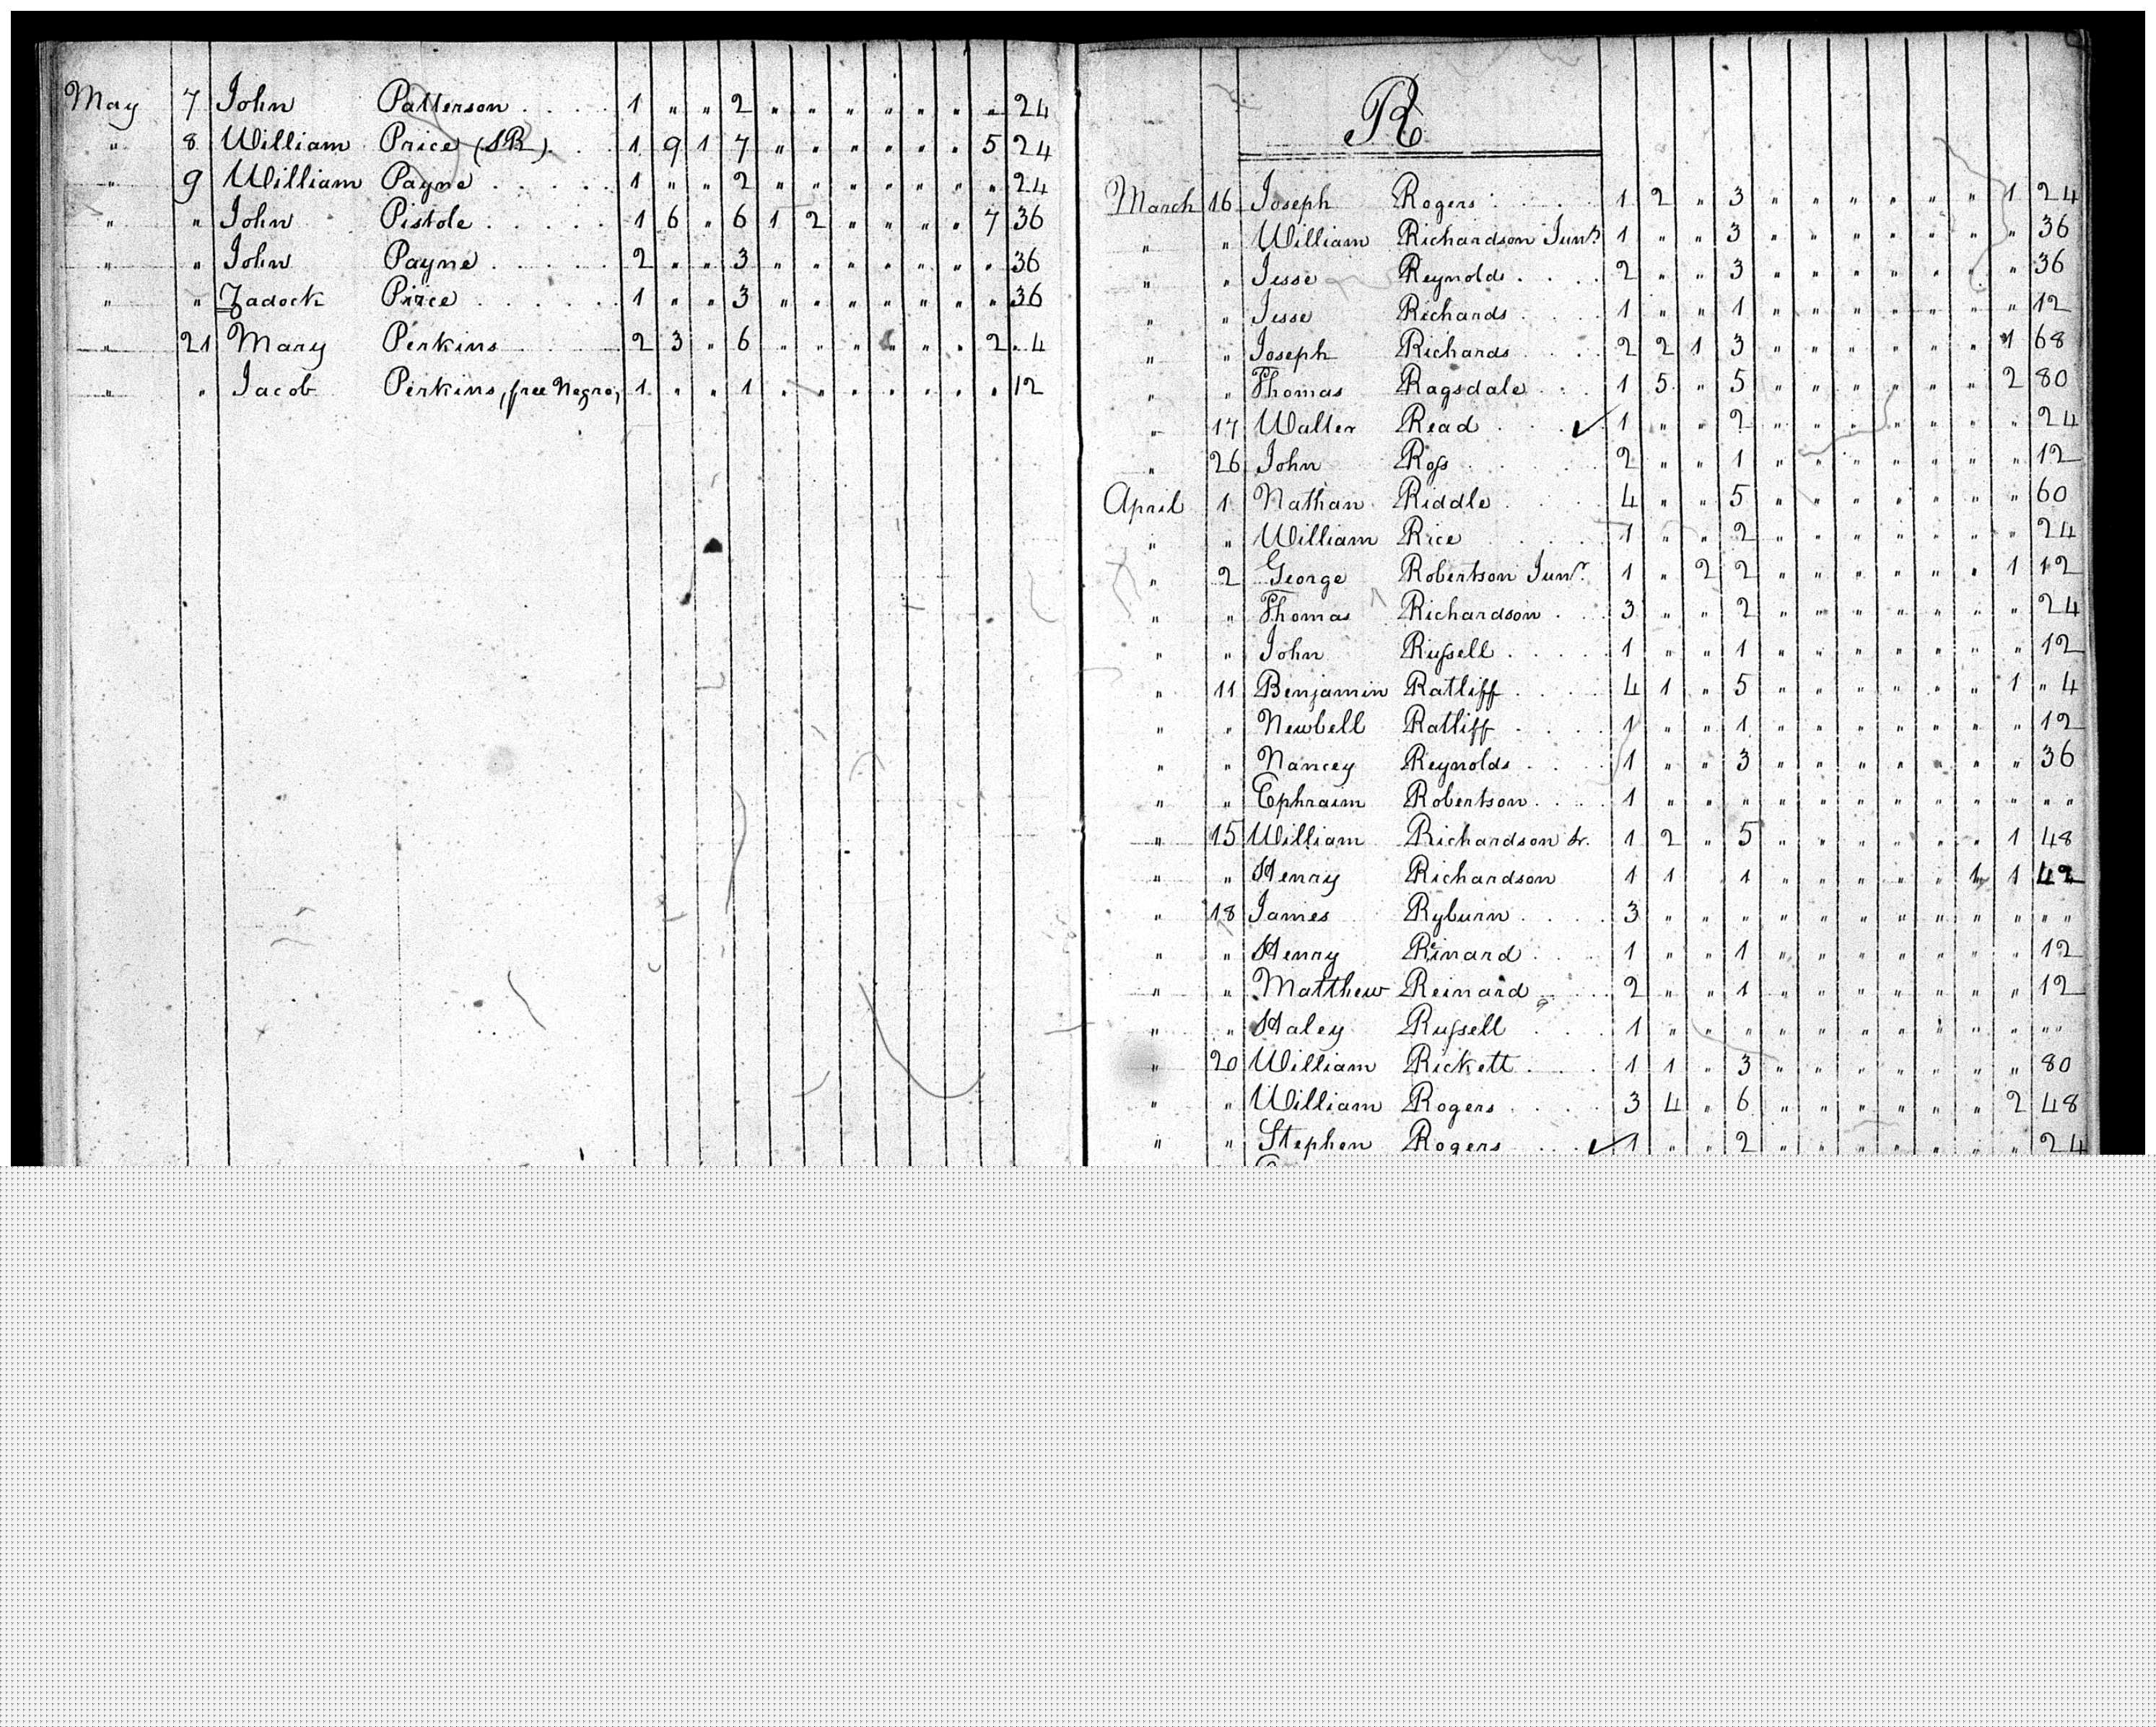 May 7 John Patterson . . . . 1 " " 2 " " " " " " " 24
" 8 William Price (SR) . . 1 9 1 7 " " " " " " 5 24
" 9 William Payne . . . . . 1 " " 2 " " " " " " " 24
" " John Pistole . . . . . 1 6 " 6 1 2 " " " " 7 36
" " John Payne . . . . . 2 " " 3 " " " " " " " 36
" " Zadock Price . . . . . 1 " " 3 " " " " " " " 36
" 21 Mary Perkins . . . . 2 3 " 6 " " " " " " 2 " 4
" " Jacob Perkins, free Negro, 1 " " 1 " " " " " " " 12
R
March 16 Joseph Rogers . . . . 1 2 " 3 " " " " " " 1 24
" " William Richardson Junr 1 " " 3 " " " " " " " 36
" " Jesse Reynolds . . . . 2 " " 3 " " " " " " " 36
" " Jesse Richards . . . . 1 " " 1 " " " " " " " 12
" " Joseph Richards . . . . 2 2 1 3 " " " " " " 1 68
" " Thomas Ragsdale . . . 1 5 " 5 " " " " " " 2 80
" 17 Walter Read . . . ✓ 1 " " 2 " " " " " " " 24
" 26 John Ross . . . . 2 " " 1 " " " " " " " 12
April 1 Nathan Riddle . . . . 4 " " 5 " " " " " " " 60
" " William Rice . . . . 1 " " 2 " " " " " " " 24
" 2 George Robertson Junr. 1 " 2 2 " " " " " " 1 12
" " Thomas Richardson . . . 3 " " 2 " " " " " " " 24
" " John Russell . . . . . 1 " " 1 " " " " " " " 12
" 11 Benjamin Ratliff . . . . 4 1 " 5 " " " " " " 1 " 4
" " Newbell Ratliff . . . . 1 " " 1 " " " " " " " 12
" " Nancey Reynolds . . . . 1 " " 3 " " " " " " " 36
" " Ephraim Robertson . . . . 1 " " " " " " " " " " " "
" 15 William Richardson Sr. 1 2 " 5 " " " " " " 1 48
" " Henry Richardson 1 1 1 " " " " " 1 1 42
" 18 James Ryburn . . . . 3 " " " " " " " " " " " "
" " Henry Rinard . . . . 1 " " 1 " " " " " " " 12
" " Matthew Reinard . . . . 2 " " 1 " " " " " " " 12
" " Haley Russell . . . 1 " " " " " " " " " " " "
" 20 William Rickett . . . . 1 1 " 3 " " " " " " " 80
" " William Rogers . . . . 3 4 " 6 " " " " " " 2 48
" " Stephen Rogers . . . ✓ 1 " " 2 " " " " " " " 24